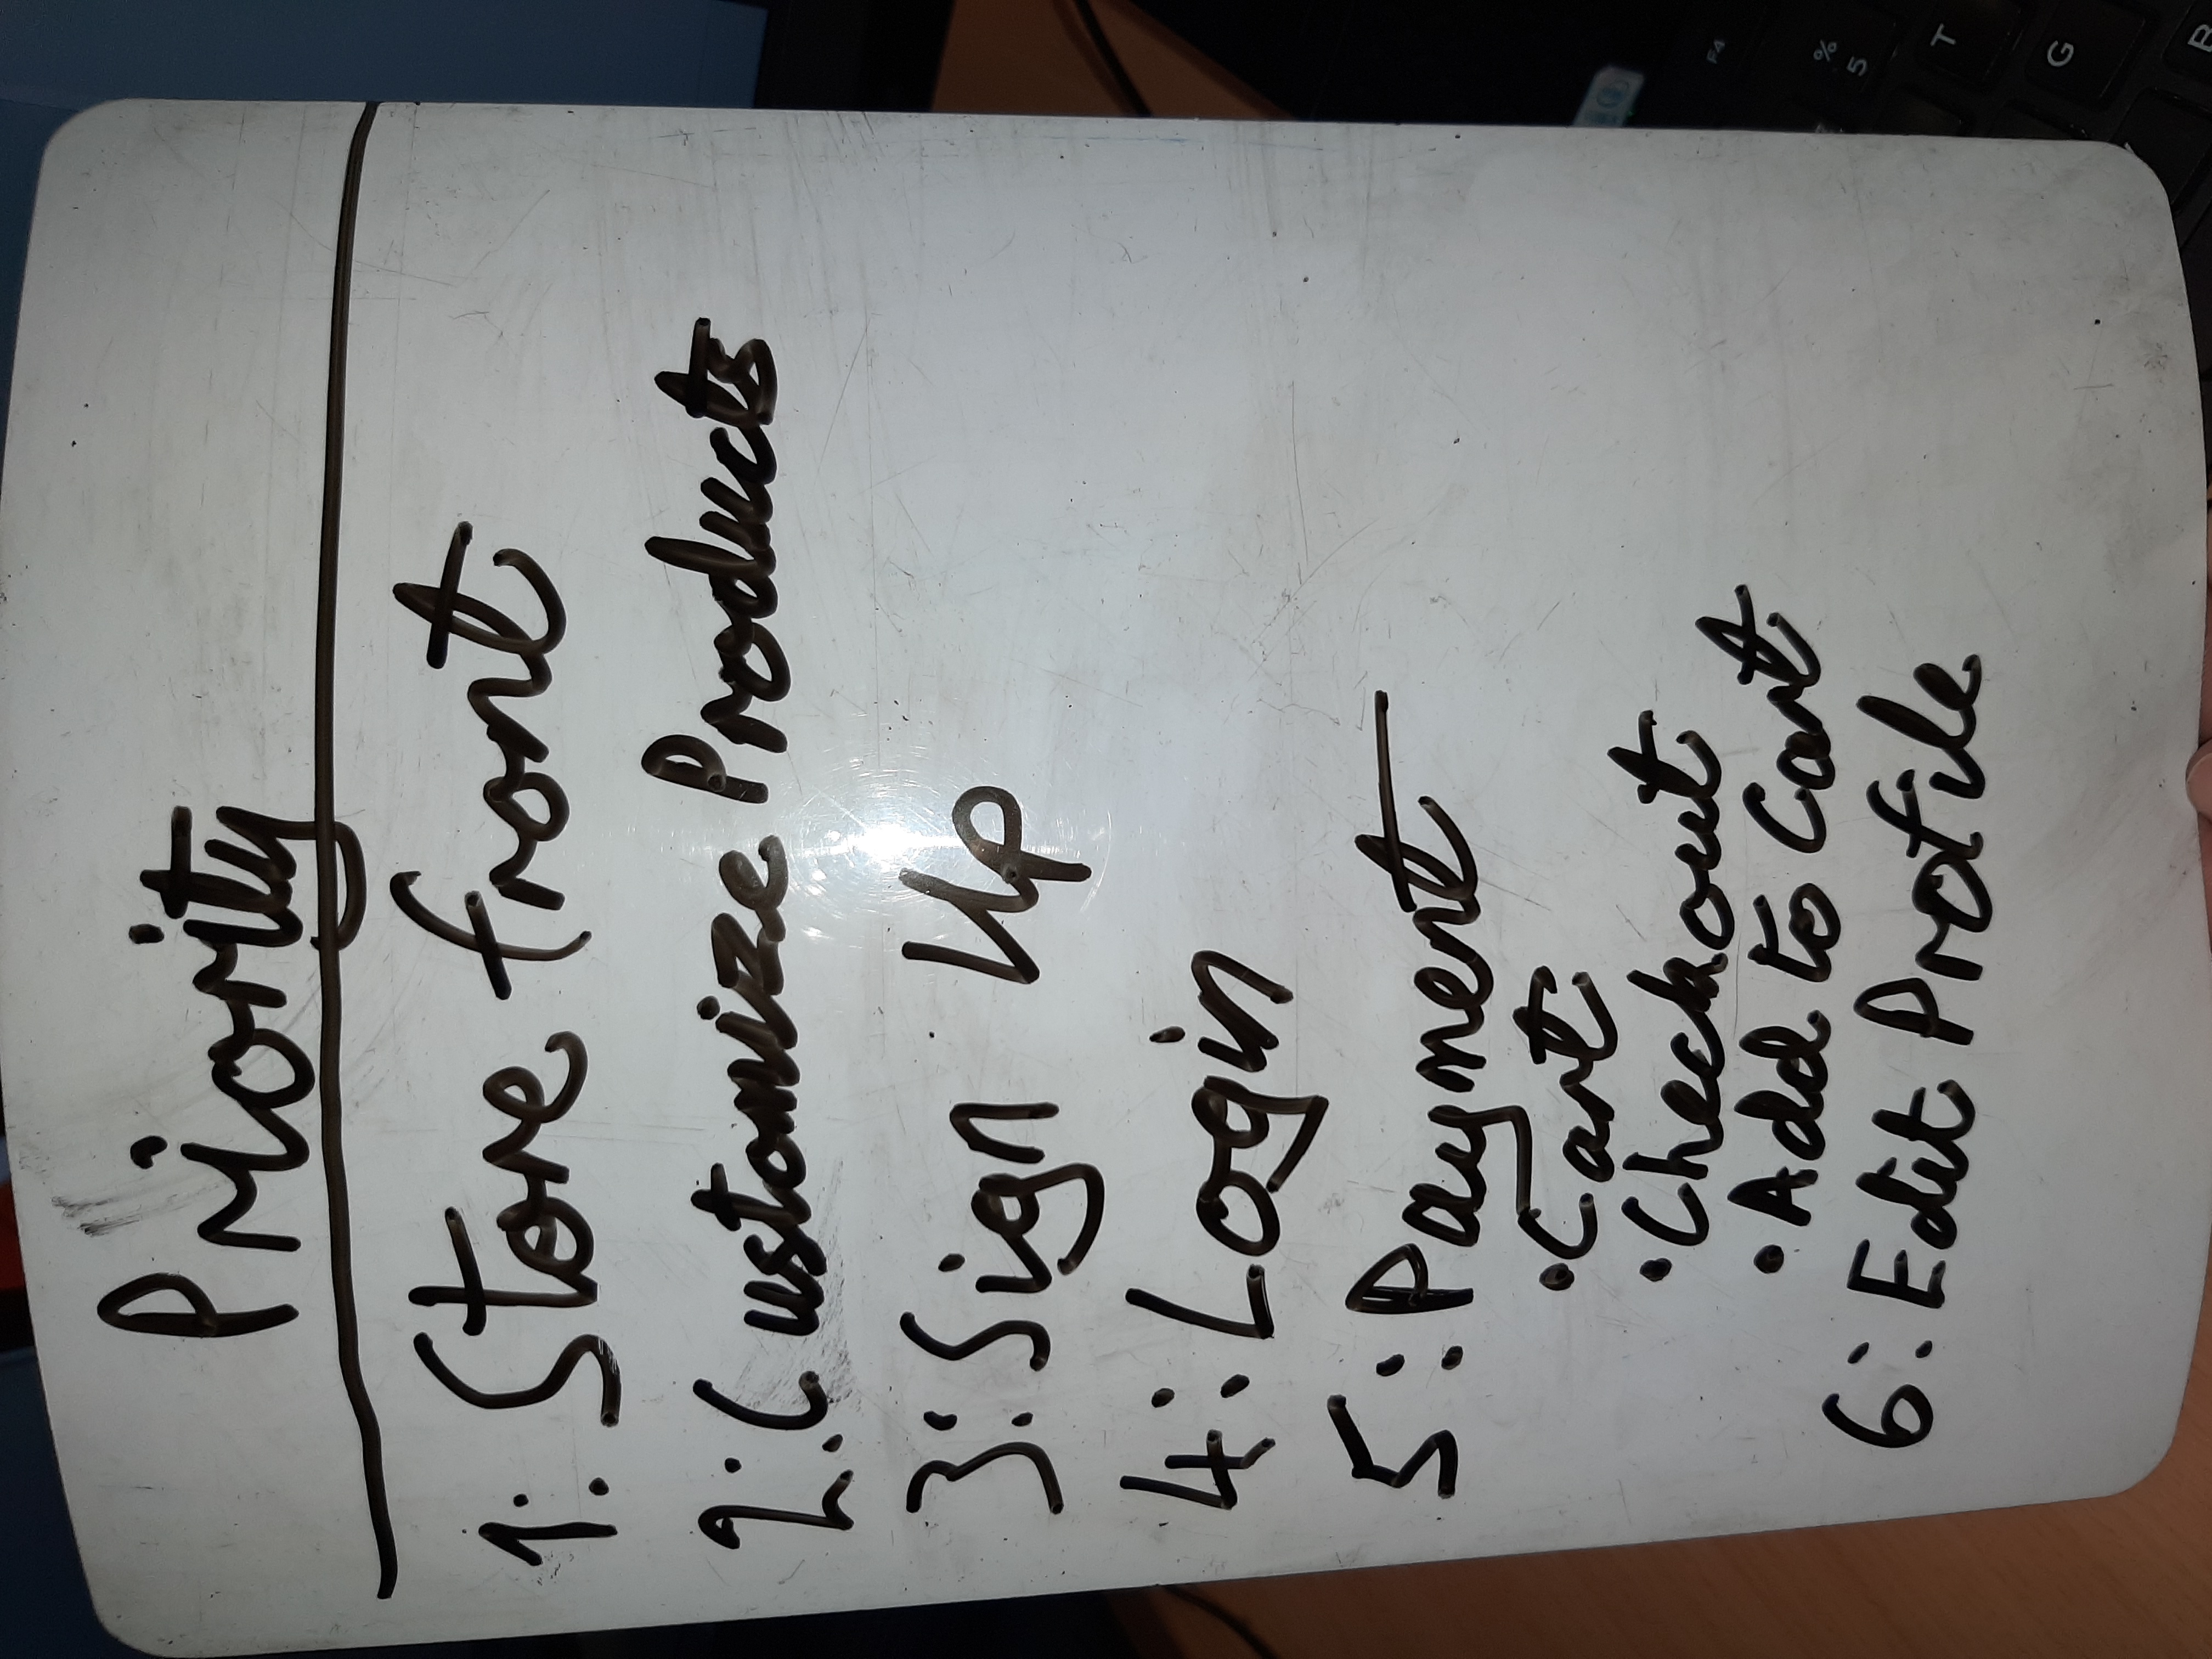 Priority
1: Store front
2: Customize Products
3: Sign Up
4: Login
5: Payment
• Cart
• Checkout
• Add to Cart
6: Edit Profile
F4
%
5
T
G
B